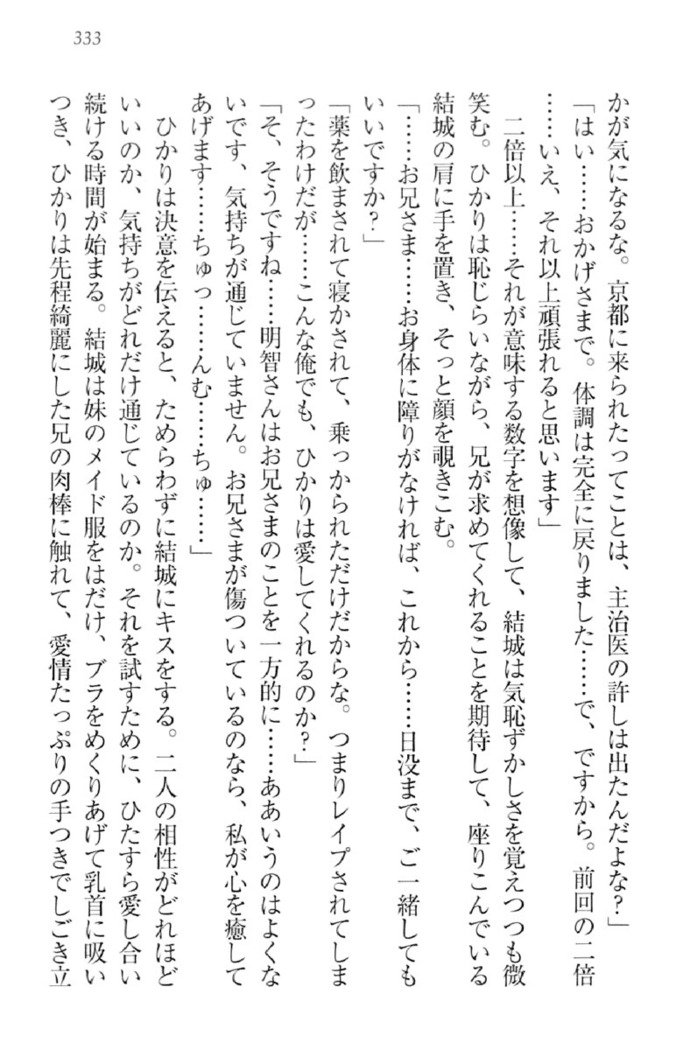 333
かが気になるな。京都に来られたってことは、主治医の許しは出たんだよな?」
「はい……おかげさまで。体調は完全に戻りました……で、ですから。前回の二倍
……いえ、それ以上頑張れると思います」
二倍以上……それが意味する数字を想像して、結城は気恥ずかしさを覚えつつも微
笑む。ひかりは恥じらいながら、兄が求めてくれることを期待して、座りこんでいる
結城の肩に手を置き、そっと顔を覗きこむ。
「……お兄さま……お身体に障りがなければ、これから……日没まで、ご一緒しても
いいですか?」
「薬を飲まされて寝かされて、乗っかられただけだからな。つまりレイプされてしま
ったわけだが……こんな俺でも、ひかりは愛してくれるのか?」
「そ、そうですね……明智さんはお兄さまのことを一方的に……ああいうのはよくな
いです、気持ちが通じていません。お兄さまが傷ついているのなら、私が心を癒して
あげます……ちゅっ……んむ……ちゅ……」
ひかりは決意を伝えると、ためらわずに結城にキスをする。二人の相性がどれほど
いいのか、気持ちがどれだけ通じているのか。それを試すために、ひたすら愛し合い
続ける時間が始まる。結城は妹のメイド服をはだけ、ブラをめくりあげて乳首に吸い
つき、ひかりは先程綺麗にした兄の肉棒に触れて、愛情たっぷりの手つきでしごき立